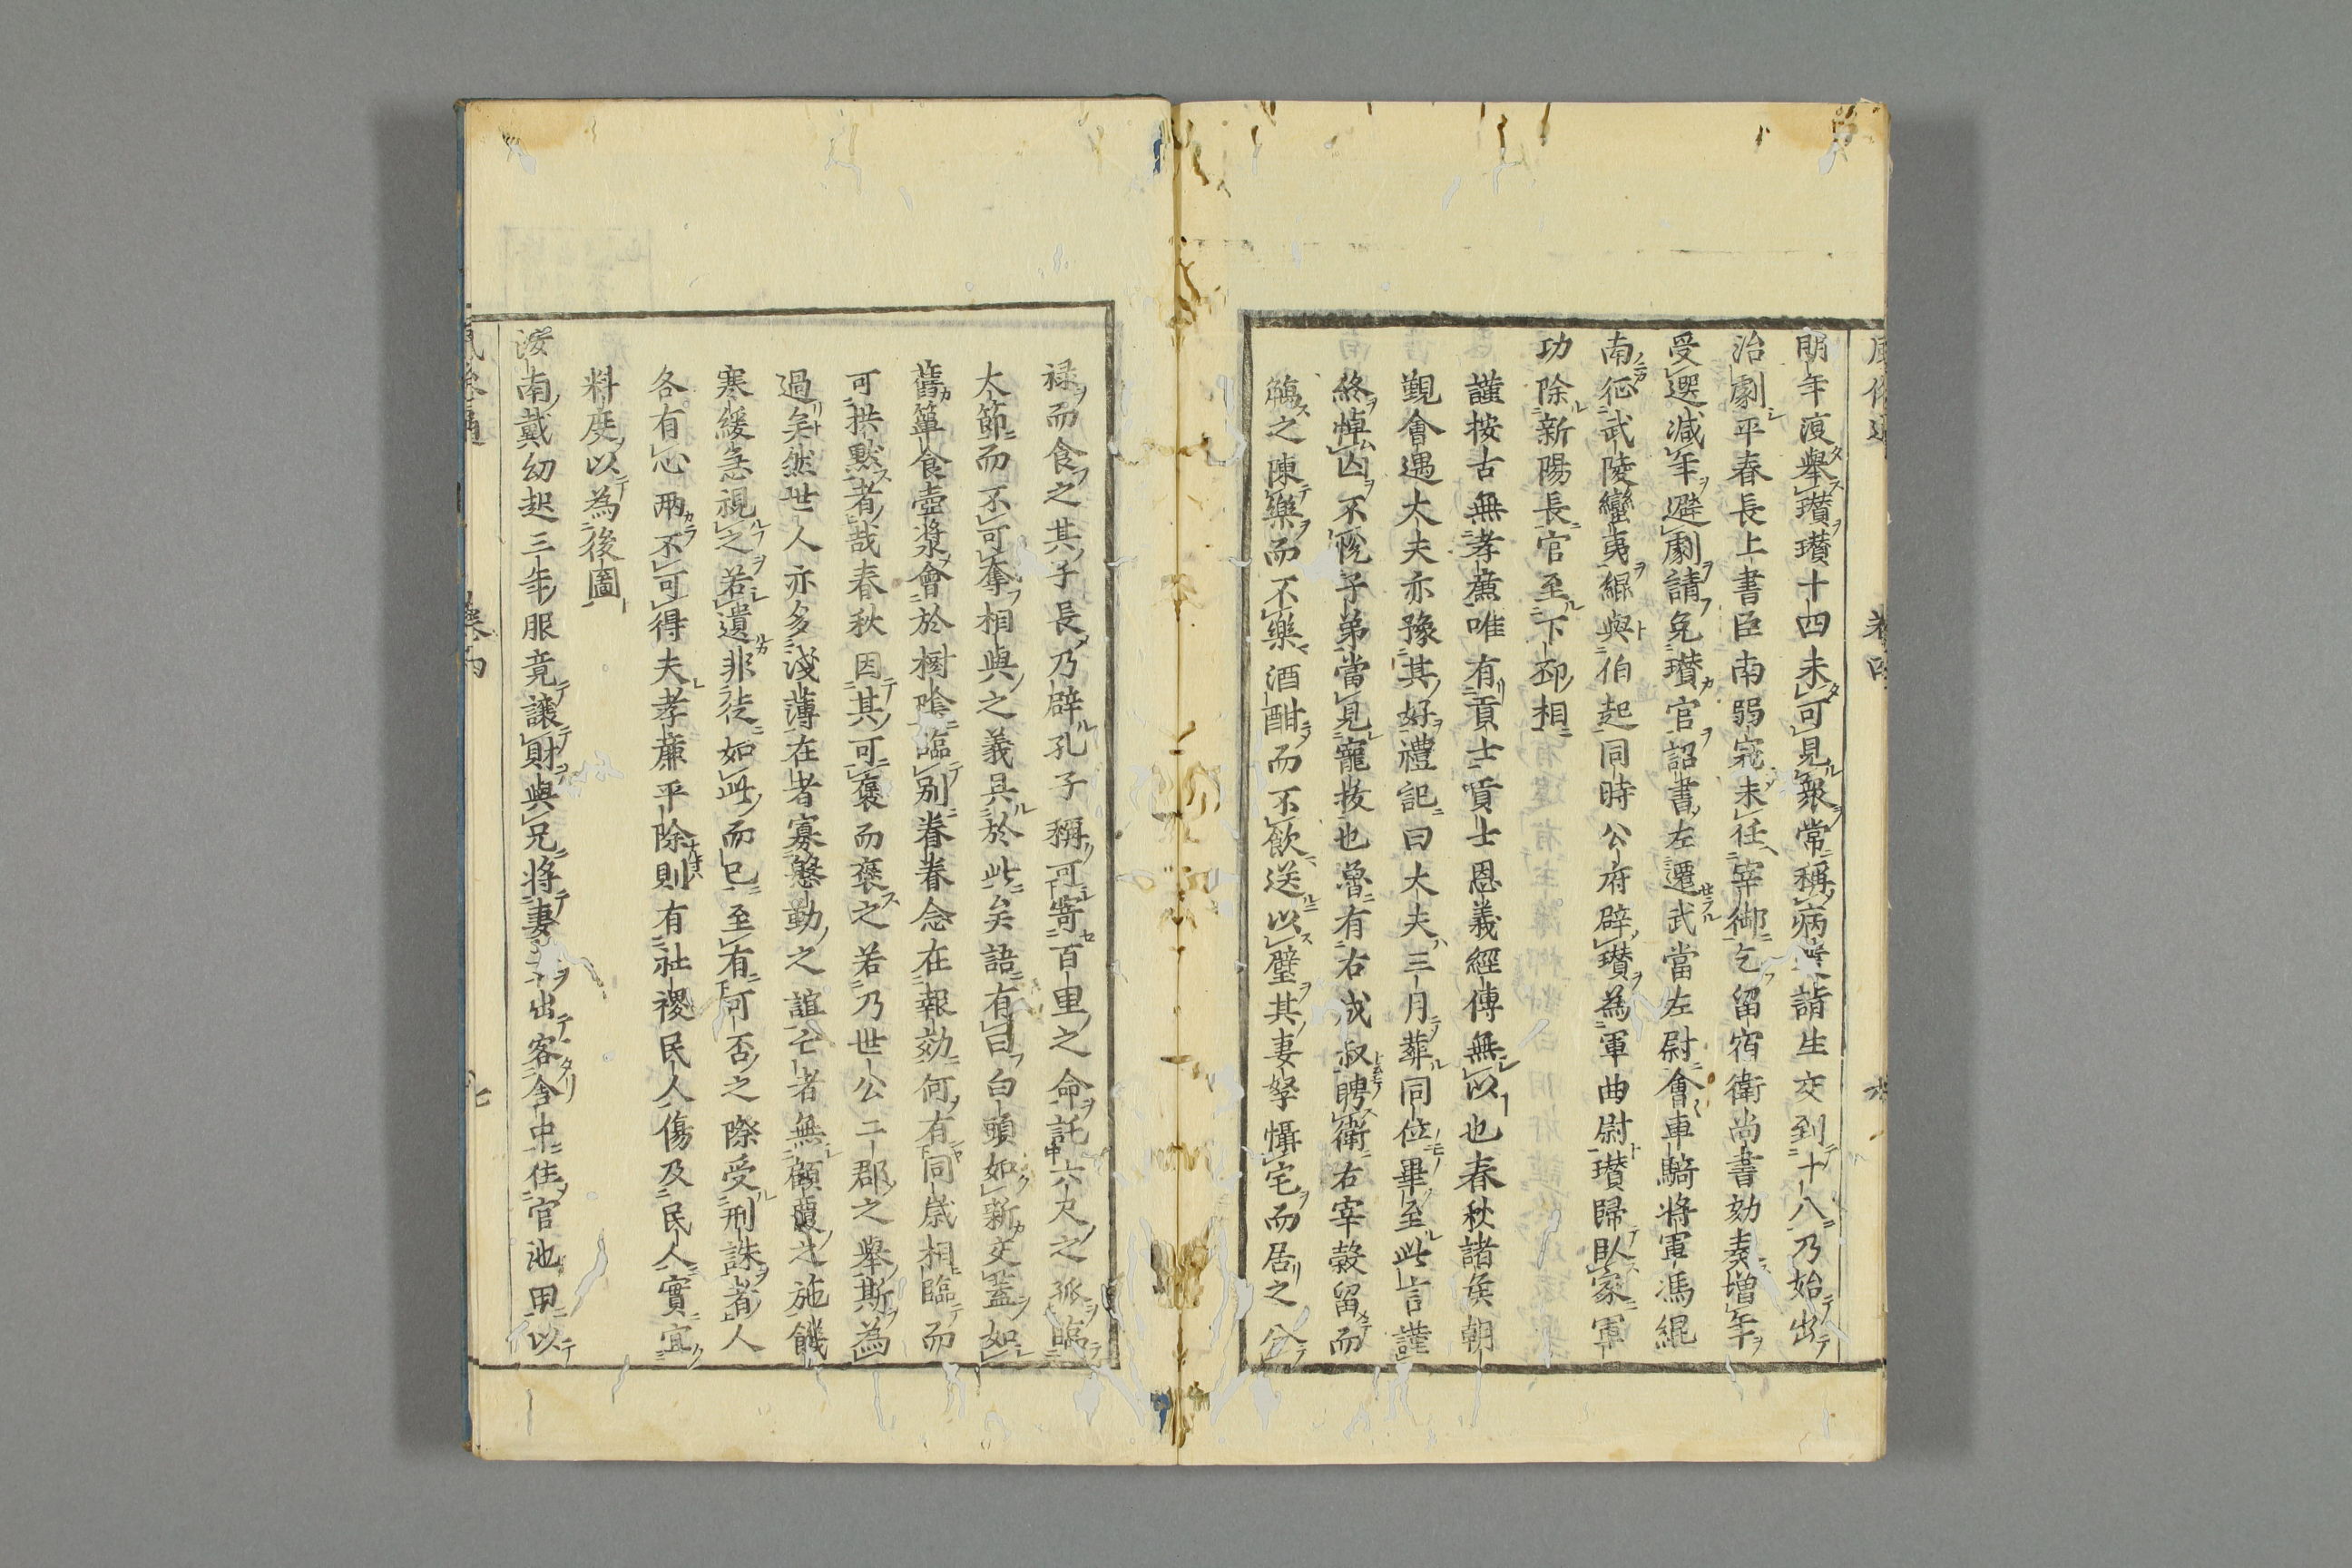 明年復擧瓚瓚十四未可見衆常稱病詣生交到十八乃始出
治劇平春長上書臣南弱冠未任宰御乞留宿衛尚書劾奏增年
受選減年避劇請免瓚官詔書左遷武當左尉會車騎將軍馮緄
南征武陵蠻夷緄與伯起同時公府辟瓚為軍曲尉瓚歸臥家軍
功除新陽長官至下邳相
謹按古無孝廉唯有貢士貢士恩義經傳無以也春秋諸矦朝
覲會遇大夫亦豫其好禮記曰大夫三月葬同位畢至此言謹
終悼亡不說子弟當見寵拔也魯有右成叔聘衛右宰穀留而
觴之陳樂而不樂酒酣而不飲送以璧其妻孥懾宅而居之分
祿而食之其子長乃辟孔子稱可寄百里之命託六尺之孤臨
大節而不可奪相與之義具於此矣語有曰白頭如新交蓋如
舊簞食壺漿會於樹陰臨別眷眷念在報効何有同歲相臨而
可拱默者哉春秋因其可褒而褒之若乃世公二郡之舉斯為
過矣然世人亦多淺薄在者寡慇勤之誼亡者無顧覆之施饑
寒緩急視之若遺非徒如此而已至有可否之際受刑誅者人
各有心兩不可得夫孝廉平除則有社稷民人傷及民人實宜
料度以為後圖
汝南戴幼起三年服竟讓財與兄將妻子出客舍中住官池田以